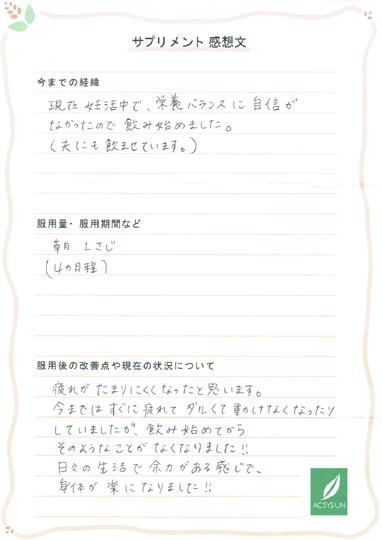 サプリメント 感想文
今までの経緯
現在 妊活中で、栄養バランスに 自信が
なかったので 飲み始めました。
(夫にも 飲ませています。)
服用量・服用期間など
朝 1さじ
(4カ月程)
服用後の改善点や現在の状況について
疲れが たまりにくくなったと思います。
今までは すぐに疲れて ダルくて 動かけなくなったり
していましたが、飲み始めてから
そのようなことが なくなりました!!
日々の 生活で 余力がある感じで、
身体が 楽に なりました!!
ACSYSUN